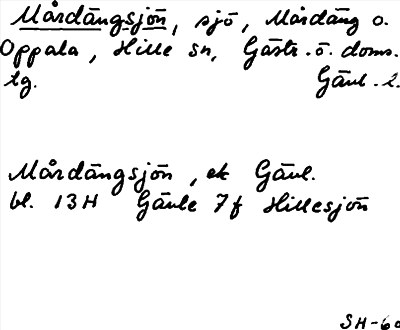 Mårdängsjön, sjö, Mårdäng o.
Oppala, Hille sn, Gästr. ö. doms.
lg. Gävl. l.
Mårdängsjön, ek Gävl.
bl. 13H Gävle 7f Hillesjön
SH-60